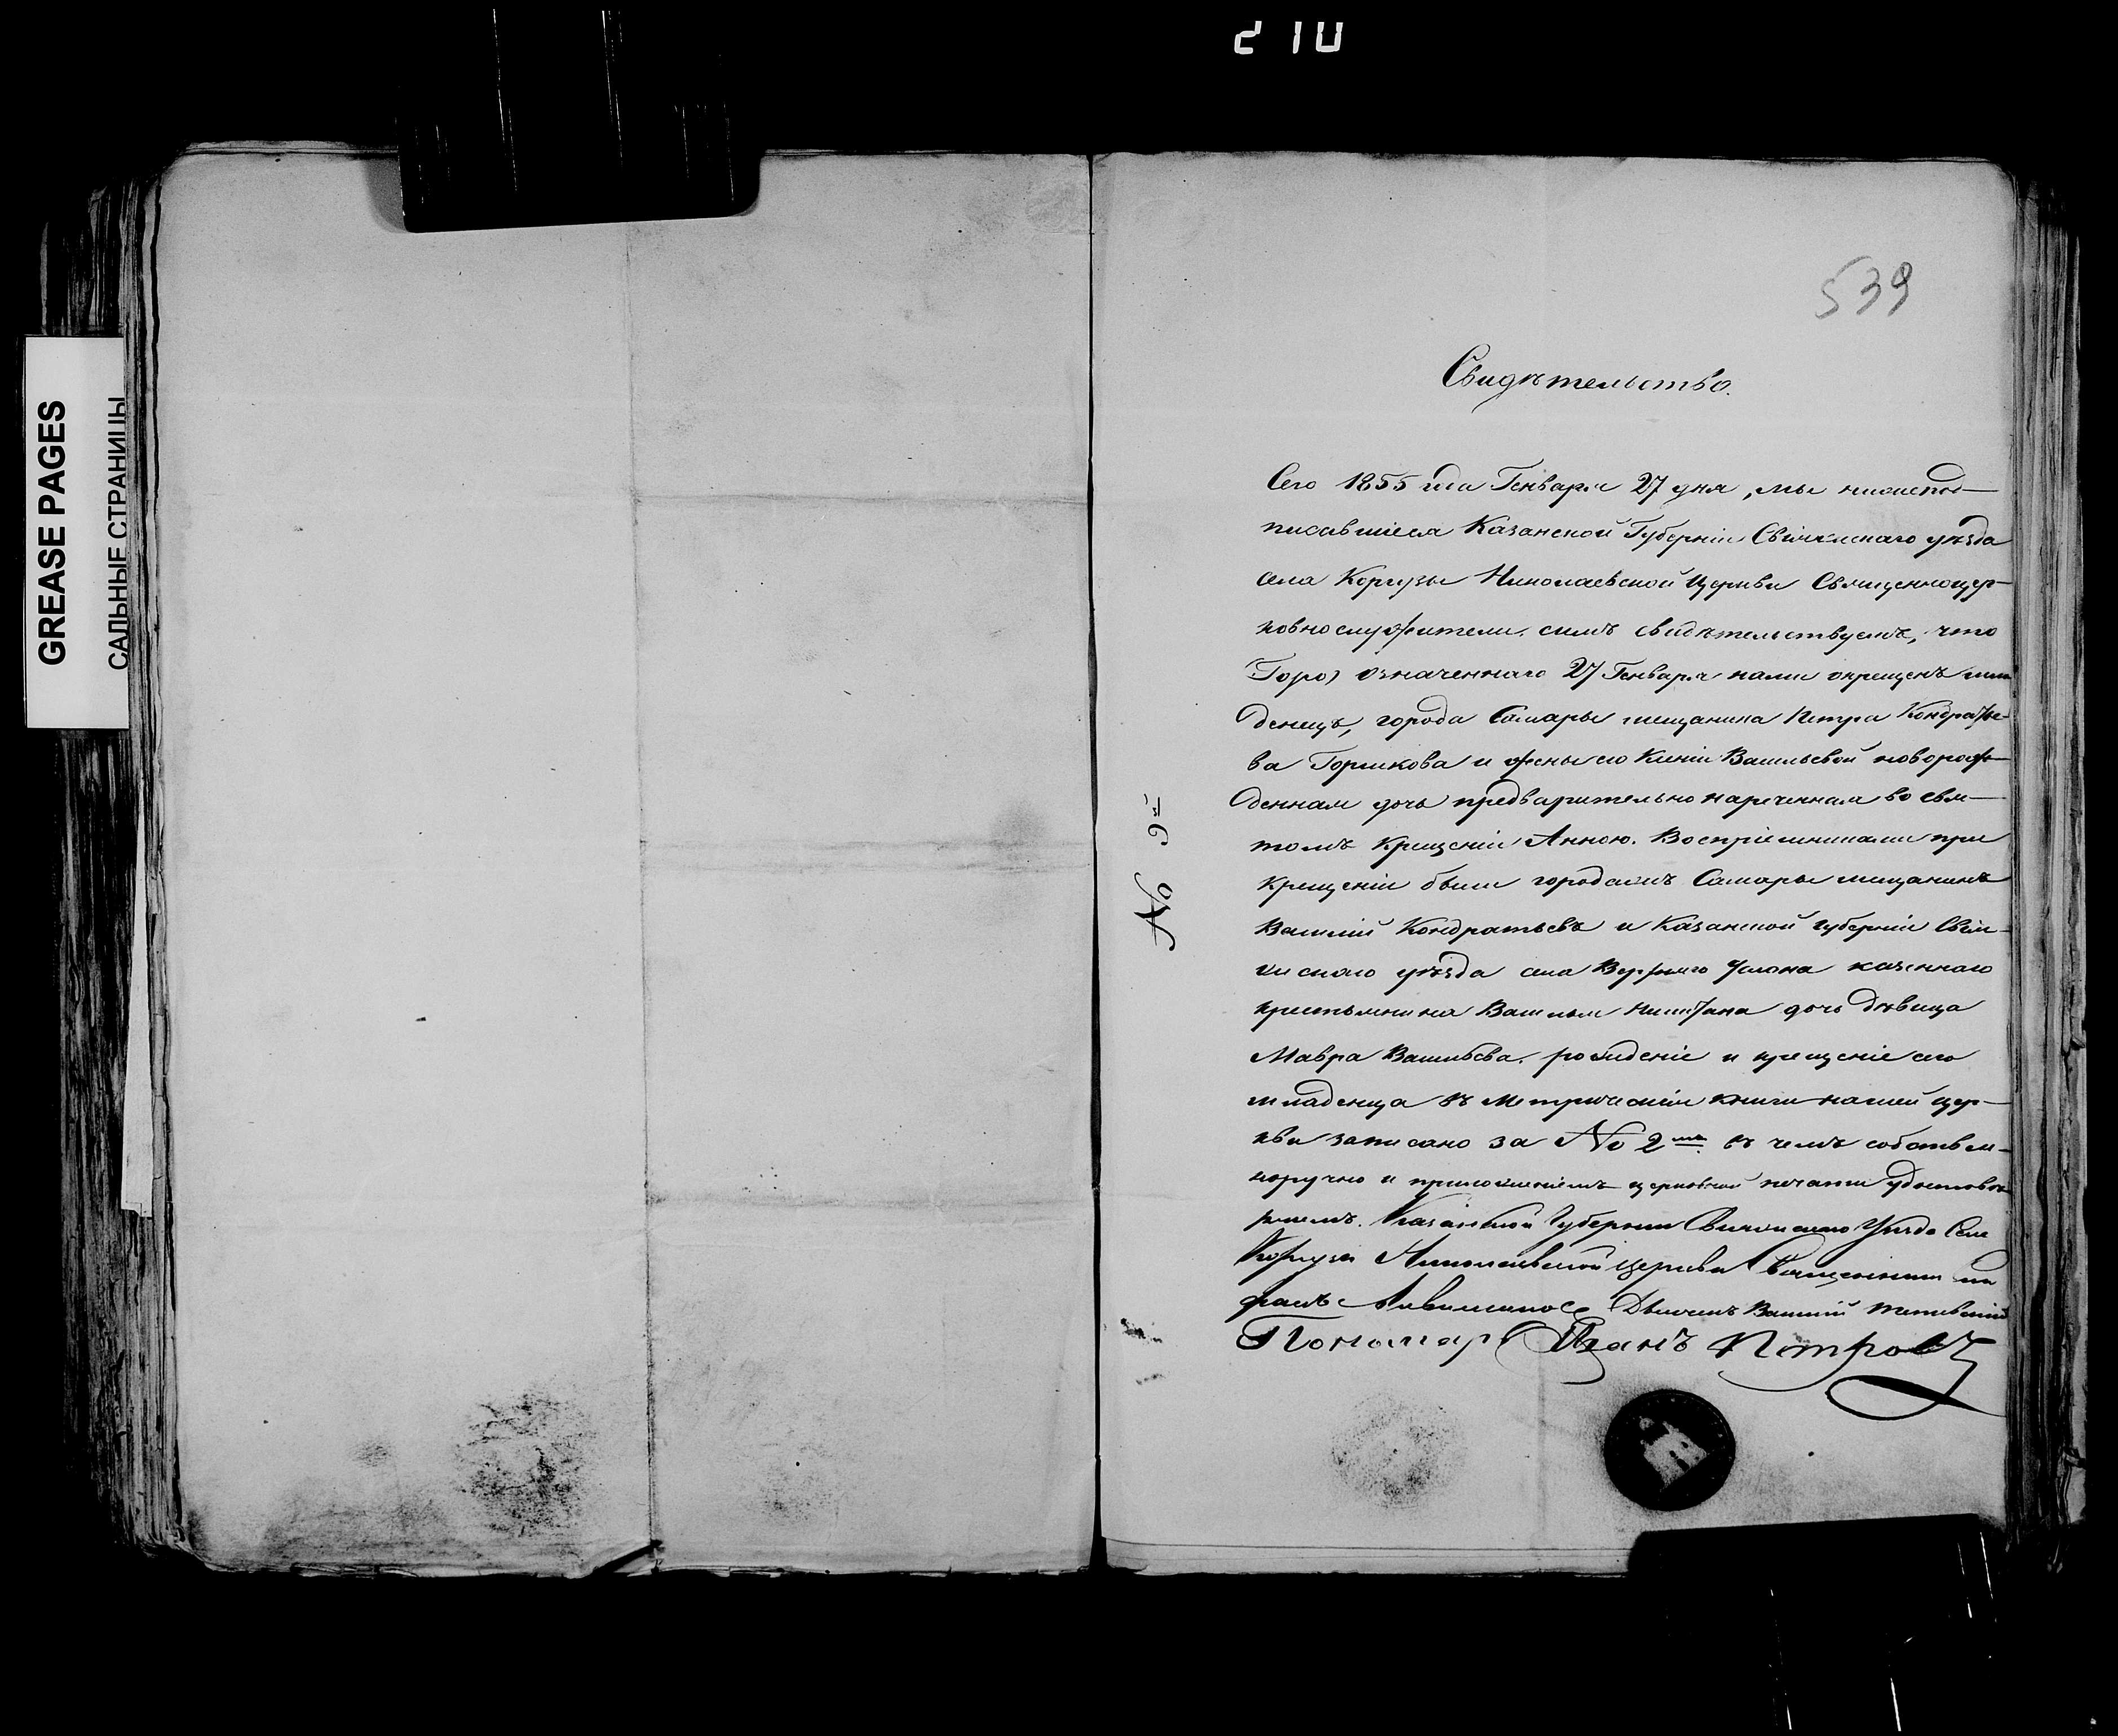 210
GREASE PAGES
САЛЬНЫЕ СТРАНИЦЫ
539
Свидѣтельство.
№ 9й
Сего 1855 года Генваря 27 дня, мы нижепод-
писавшіеся Казанской Губерніи Свіяжскаго уѣзда
села Коргузы Николаевской Церкви Священноцер-
ковнослужители, симъ свидѣтельствуемъ, что
означеннаго 27 Генваря нами окрещенъ мла
денецъ, города Самары мещанина Петра Кондратье-
ва Горшкова и жены его Васильевой новорож-
денная дочь предварительно нареченная во свя-
томъ Крещеніи Анною. Воспріемниками при
Крещеніи были города Самары мещанинъ
Василій Кондратьевъ и Казанской губерніи Свія-
жскаго уѣзда села Верхняго Услона казеннаго
крестьянина Василья дочь дѣвица
Мавра Васильева. рожденіе и крещеніе сего
младенца въ Метрической книги нашей цер-
кви записано за № 2мъ въ чемъ собствен-
норучно и приложеніемъ церковной печати удостовѣ
ряемъ. Казанской Губерніи Свіяжскаго Уѣзда Села
Коргузы Николаевской церкви Священникъ
Дьячекъ Василій
Пономарь Иванъ Петровъ